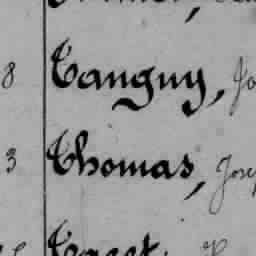 8 Tanguy, Jo
3 Thomas, Jose